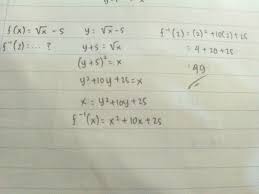 f(x) = √x - 5
f⁻¹(2) = ... ?
y = √x - 5
y + 5 = √x
(y + 5)² = x
y² + 10y + 25 = x
x = y² + 10y + 25
f⁻¹(x) = x² + 10x + 25
f⁻¹(2) = (2)² + 10(2) + 25
= 4 + 20 + 25
= 49